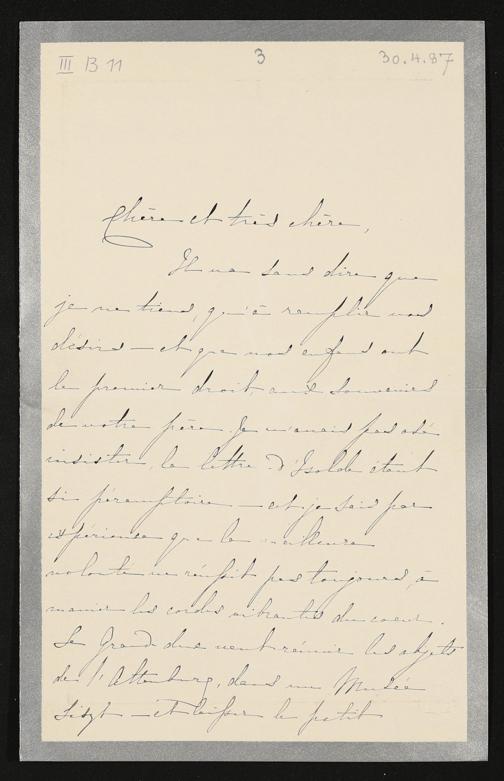 III B 11
3
30.4.87
Chère et très chère,
Il va sans dire que
je ne tiens, qu'à remplir vos
désirs — et que vos enfans ont
le premier droit aux souvenirs
de votre père. Je n'avais pas osé
insister, la lettre d'Isolde étant
si péremptoire — et je sais par
expérience que la meilleure
volonté ne réussit pas toujours, à
manier les cordes vibrantes du coeur.
Le Grand duc veut réunir les objets
de l'Altenburg, dans un Musée
Liszt — et laisser le petit